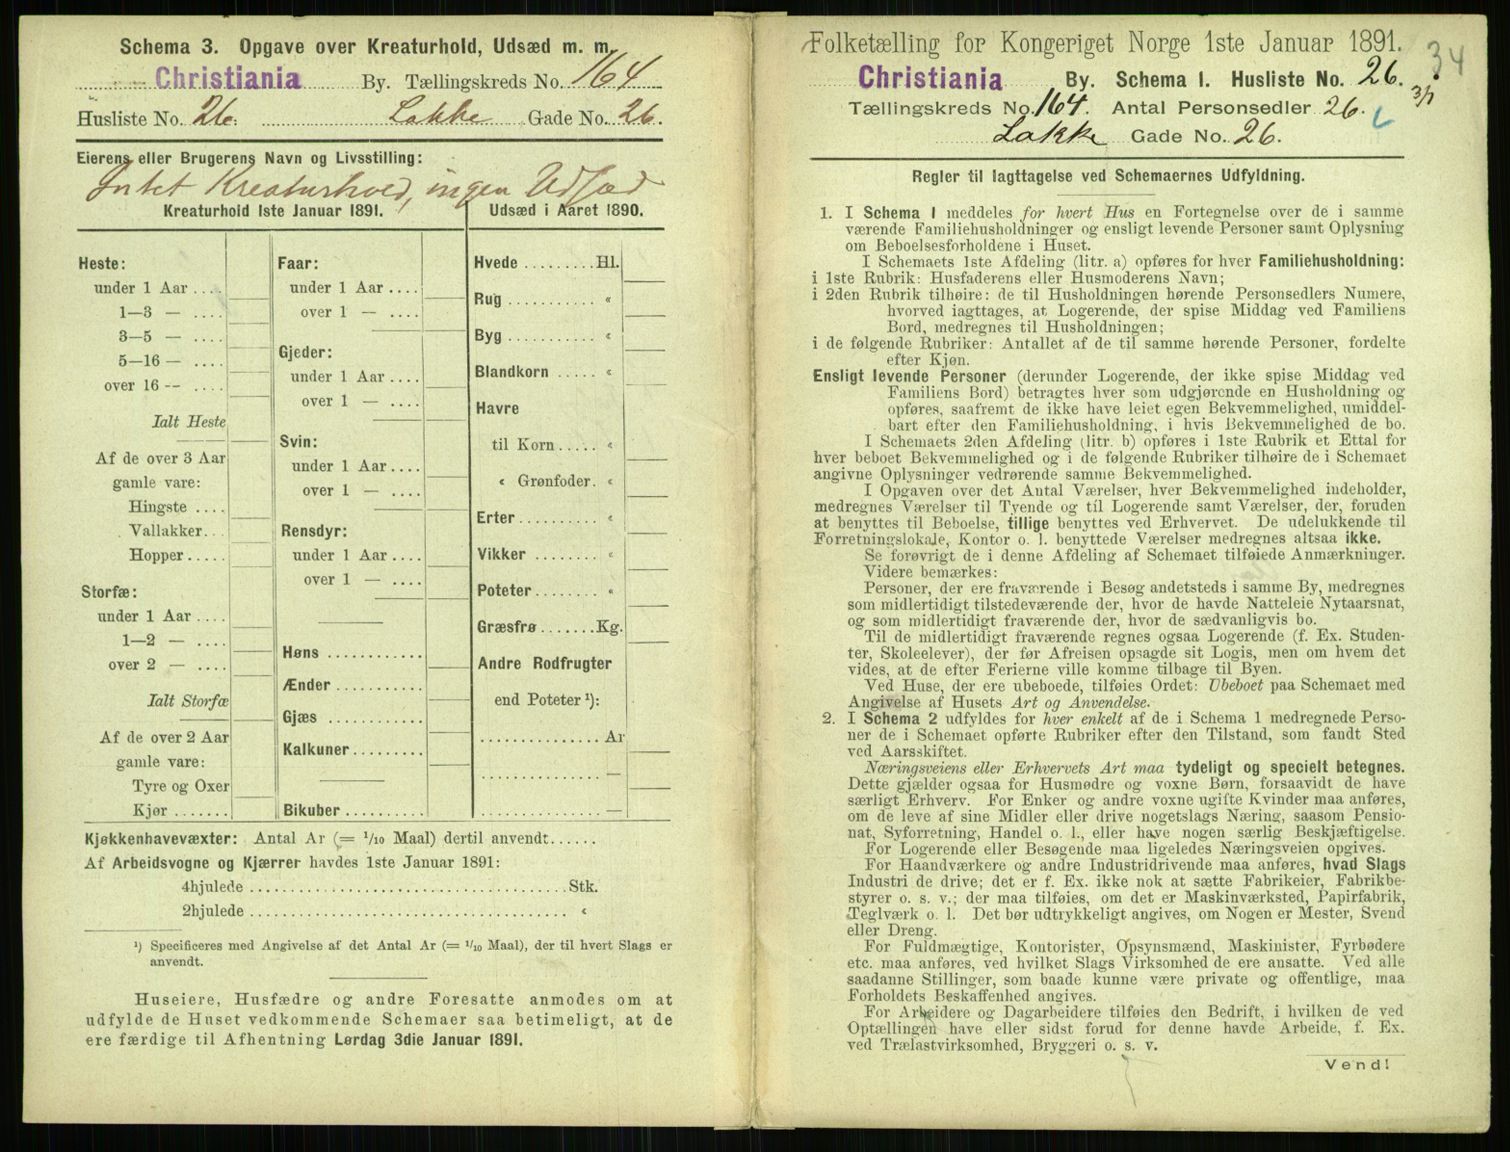 Schema 3. Opgave over Kreaturhold, Udsæd m. m.
Christiania By. Tællingskreds No. 164
Husliste No. 26. Lakke Gade No. 26.
Eierens eller Brugerens Navn og Livsstilling:
Intet Kreaturhold, ingen Udsæd
Kreaturhold 1ste Januar 1891.
Heste:
under 1 Aar ....
1—3 — ....
3—5 — ....
5—16 — ....
over 16 — ....
Ialt Heste
Af de over 3 Aar
gamle vare:
Hingste ....
Vallakker....
Hopper......
Storfæ:
under 1 Aar ....
1—2 — ....
over 2 — ....
Ialt Storfæ
Af de over 2 Aar
gamle vare:
Tyre og Oxer
Kjør ........
Faar:
under 1 Aar ....
over 1 — ....
Gjeder:
under 1 Aar ....
over 1 — ....
Svin:
under 1 Aar ....
over 1 — ....
Rensdyr:
under 1 Aar ....
over 1 — ....
Høns ............
Ænder ..........
Gjæs ............
Kalkuner.........
Bikuber ..........
Udsæd i Aaret 1890.
Hvede .........Hl.
Rug ........... «
Byg ........... «
Blandkorn ..... «
Havre
til Korn..... «
« Grønfoder. «
Erter .......... «
Vikker ........ «
Poteter........ «
Græsfrø.......Kg.
Andre Rodfrugter
end Poteter ¹):
............... Ar
............... —
............... —
Kjøkkenhavevæxter: Antal Ar (= 1/10 Maal) dertil anvendt......
Af Arbeidsvogne og Kjærrer havdes 1ste Januar 1891:
4hjulede ........................................ Stk.
2hjulede ........................................ «
¹) Specificeres med Angivelse af det Antal Ar (= 1/10 Maal), der til hvert Slags er
anvendt.
Huseiere, Husfædre og andre Foresatte anmodes om at
udfylde de Huset vedkommende Schemaer saa betimeligt, at de
ere færdige til Afhentning Lørdag 3die Januar 1891.
Folketælling for Kongeriget Norge 1ste Januar 1891.
34
Christiania By. Schema 1. Husliste No. 26.
Tællingskreds No. 164. Antal Personsedler 26.
Lakke Gade No. 26.
Regler til Iagttagelse ved Schemaernes Udfyldning.
1. I Schema 1 meddeles for hvert Hus en Fortegnelse over de i samme
værende Familiehusholdninger og ensligt levende Personer samt Oplysning
om Beboelsesforholdene i Huset.
I Schemaets 1ste Afdeling (litr. a) opføres for hver Familiehusholdning:
i 1ste Rubrik: Husfaderens eller Husmoderens Navn;
i 2den Rubrik tilhøire: de til Husholdningen hørende Personsedlers Numere,
hvorved iagttages, at Logerende, der spise Middag ved Familiens
Bord, medregnes til Husholdningen;
i de følgende Rubriker: Antallet af de til samme hørende Personer, fordelte
efter Kjøn.
Ensligt levende Personer (derunder Logerende, der ikke spise Middag ved
Familiens Bord) betragtes hver som udgjørende en Husholdning og
opføres, saafremt de ikke have leiet egen Bekvemmelighed, umiddel-
bart efter den Familiehusholdning, i hvis Bekvemmelighed de bo.
I Schemaets 2den Afdeling (litr. b) opføres i 1ste Rubrik et Ettal for
hver beboet Bekvemmelighed og i de følgende Rubriker tilhøire de i Schemaet
angivne Oplysninger vedrørende samme Bekvemmelighed.
I Opgaven over det Antal Værelser, hver Bekvemmelighed indeholder,
medregnes Værelser til Tyende og til Logerende samt Værelser, der, foruden
at benyttes til Beboelse, tillige benyttes ved Erhvervet. De udelukkende til
Forretningslokale, Kontor o. l. benyttede Værelser medregnes altsaa ikke.
Se forøvrigt de i denne Afdeling af Schemaet tilføiede Anmærkninger.
Videre bemærkes:
Personer, der ere fraværende i Besøg andetsteds i samme By, medregnes
som midlertidigt tilstedeværende der, hvor de havde Natteleie Nytaarsnat,
og som midlertidigt fraværende der, hvor de sædvanligvis bo.
Til de midlertidigt fraværende regnes ogsaa Logerende (f. Ex. Studen-
ter, Skoleelever), der før Afreisen opsagde sit Logis, men om hvem det
vides, at de efter Ferierne ville komme tilbage til Byen.
Ved Huse, der ere ubeboede, tilføies Ordet: Ubeboet paa Schemaet med
Angivelse af Husets Art og Anvendelse.
2. I Schema 2 udfyldes for hver enkelt af de i Schema 1 medregnede Perso-
ner de i Schemaet opførte Rubriker efter den Tilstand, som fandt Sted
ved Aarsskiftet.
Næringsveiens eller Erhvervets Art maa tydeligt og specielt betegnes.
Dette gjælder ogsaa for Husmødre og voxne Børn, forsaavidt de have
særligt Erhverv. For Enker og andre voxne ugifte Kvinder maa anføres,
om de leve af sine Midler eller drive nogetslags Næring, saasom Pensio-
nat, Syforretning, Handel o. l., eller have nogen særlig Beskjæftigelse.
For Logerende eller Besøgende maa ligeledes Næringsveien opgives.
For Haandværkere og andre Industridrivende maa anføres, hvad Slags
Industri de drive; det er f. Ex. ikke nok at sætte Fabrikeier, Fabrikbe-
styrer o. s. v.; der maa tilføies, om det er Maskinværksted, Papirfabrik,
Teglværk o. l. Det bør udtrykkeligt angives, om Nogen er Mester, Svend
eller Dreng.
For Fuldmægtige, Kontorister, Opsynsmænd, Maskinister, Fyrbødere
etc. maa anføres, ved hvilket Slags Virksomhed de ere ansatte. Ved alle
saadanne Stillinger, som baade kunne være private og offentlige, maa
Forholdets Beskaffenhed angives.
For Arbeidere og Dagarbeidere tilføies den Bedrift, i hvilken de ved
Optællingen have eller sidst forud for denne havde Arbeide, f. Ex.
ved Trælastvirksomhed, Bryggeri o. s. v.
Vend!